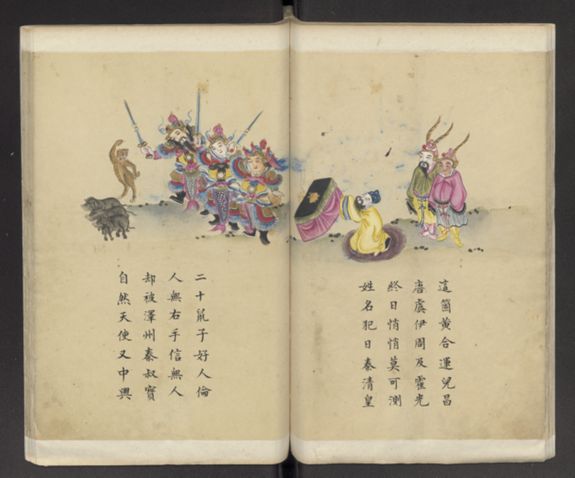 這箇黃合運兒昌
唐虞伊周及霍光
終日悄悄莫可測
姓名犯日秦清皇
二十鼠子好人倫
人無右手信無人
却被澤州秦叔寶
自然天使又中興